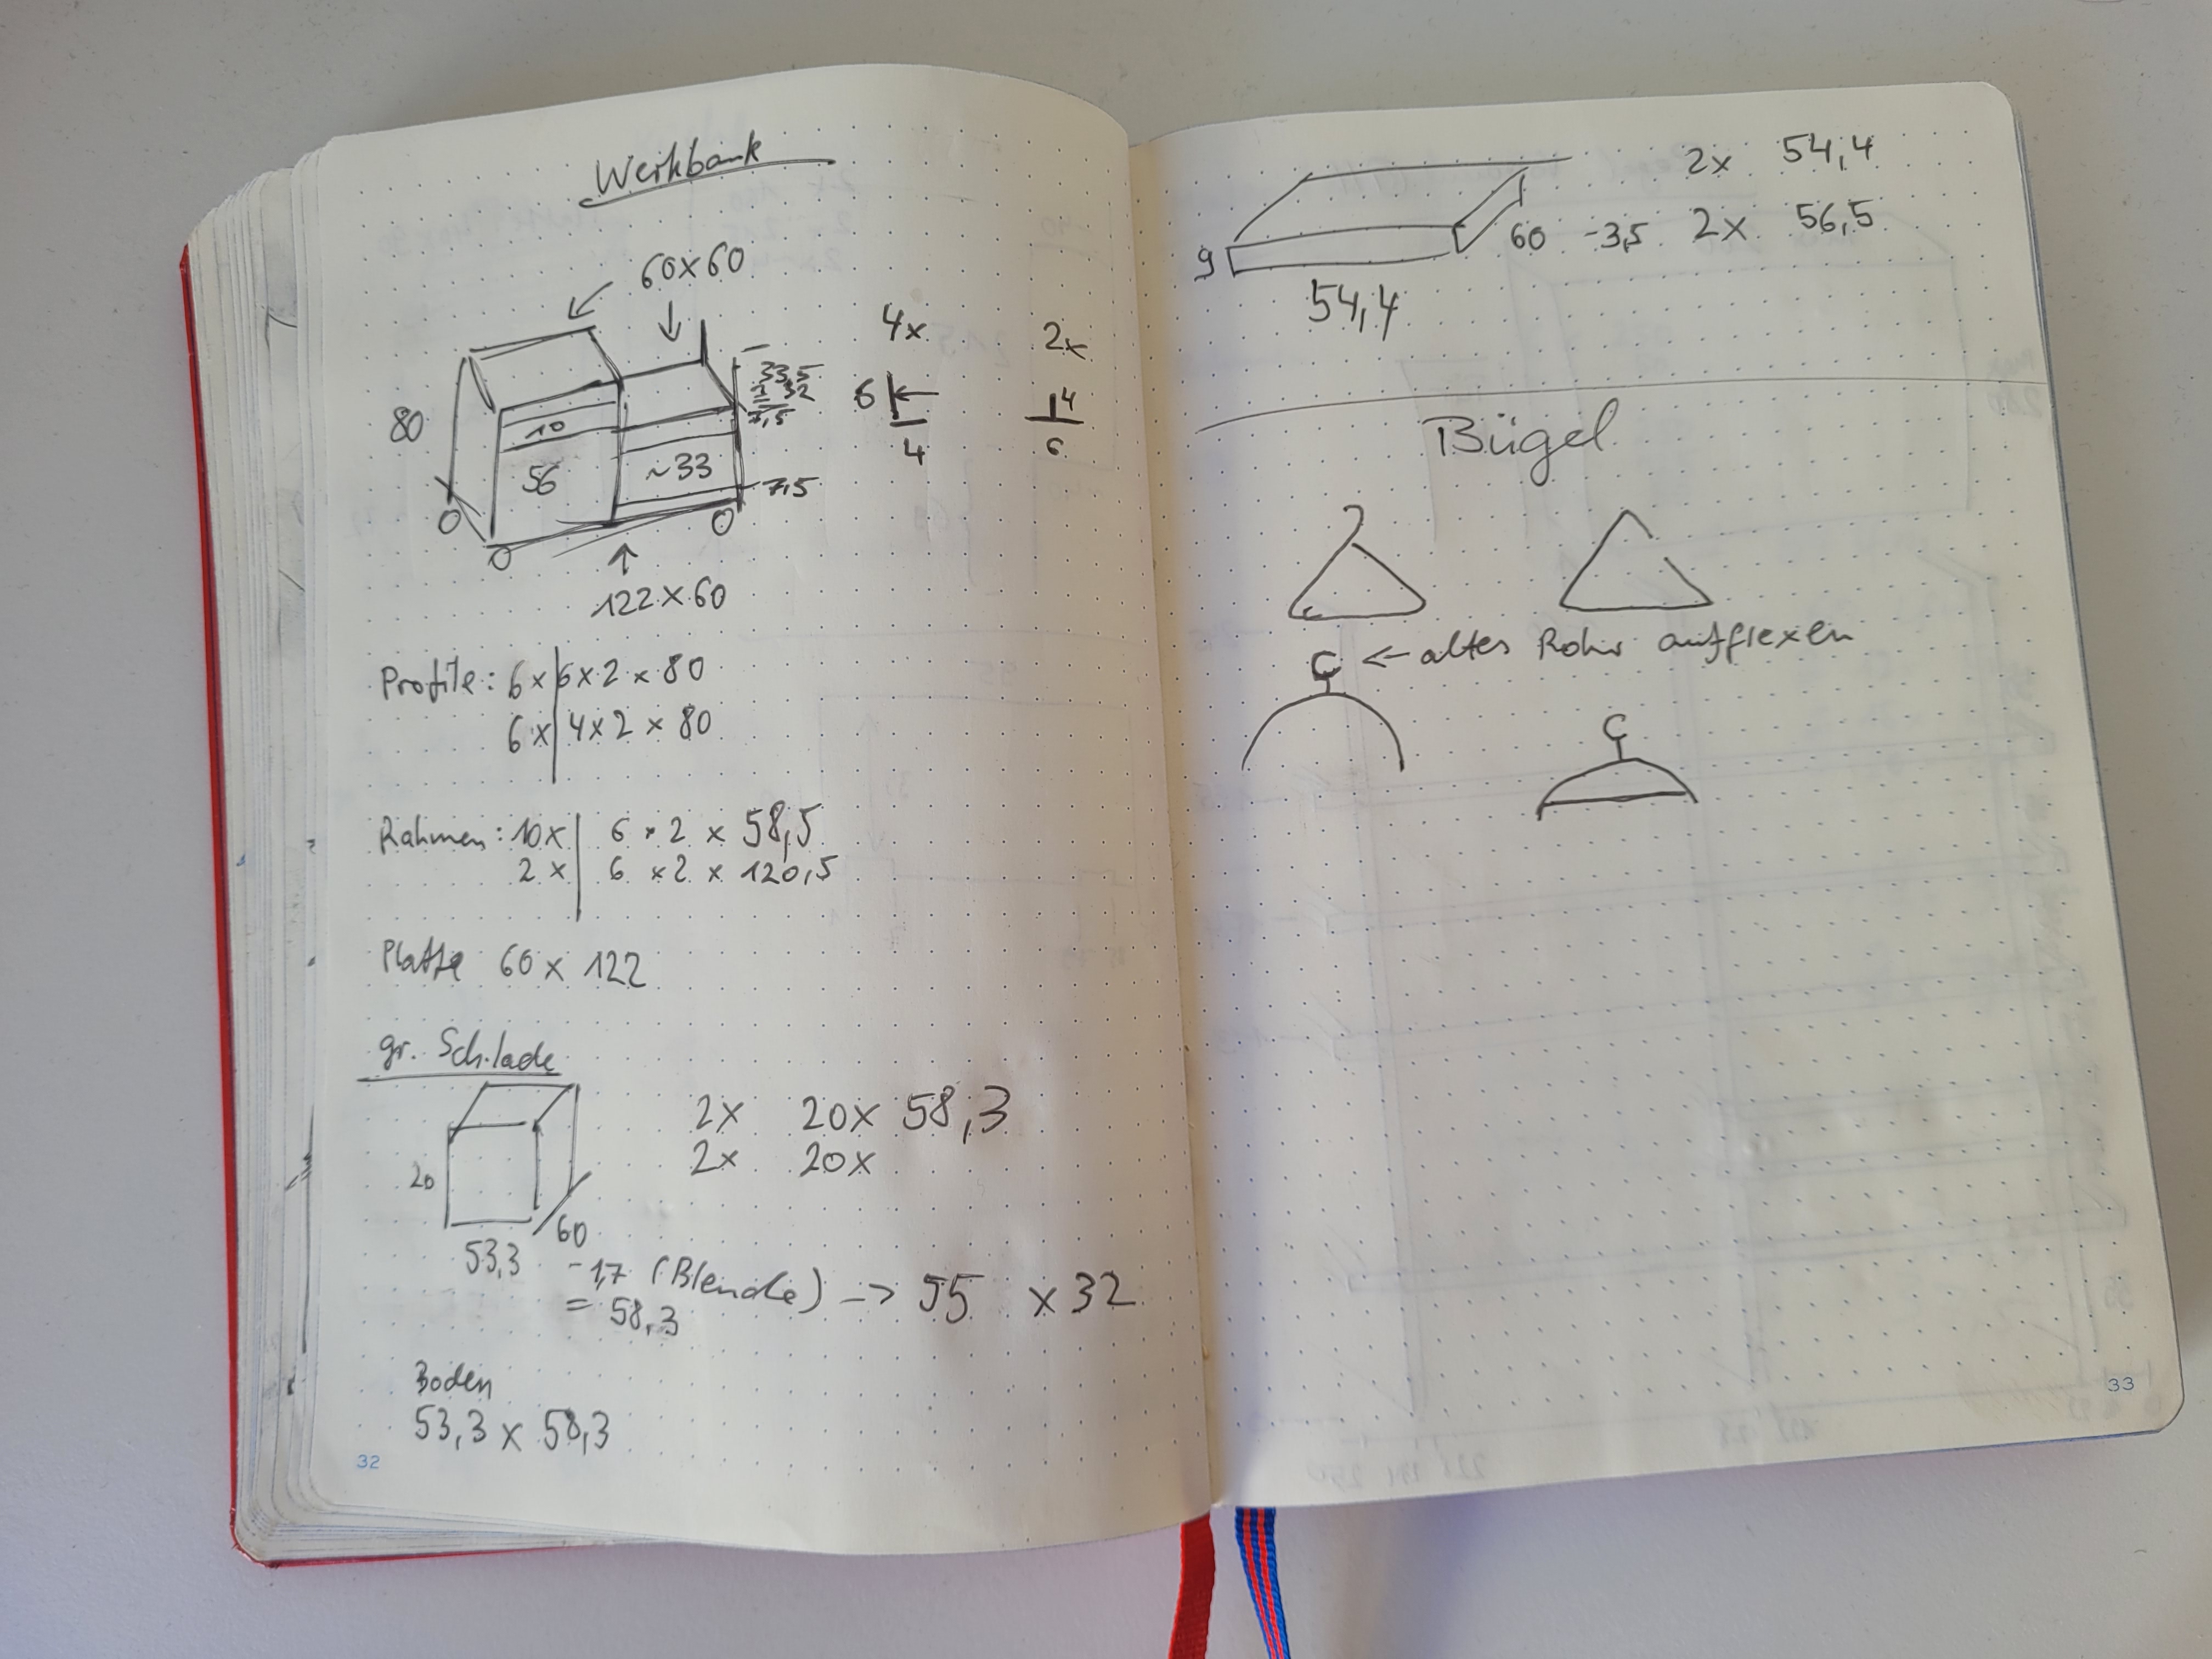 Werkbank
60x60
80
10
56
~33
33,5
32
7,5
122x60
4x
6
4
2x
4
6
Profile: 6x 6x2x80
6x 4x2x80
Rahmen: 10x 6x2x58,5
2x 6x2x120,5
Platte 60x122
gr. Schlade
20
53,3
60
-1,7 (Blende) -> 55 x32
= 58,3
2x 20x 58,3
2x 20x
Boden
53,3x58,3
32
9
54,4
60 -3,5
2x 54,4
2x 56,5
Bügel
<- altes Rohr aufflexen
33